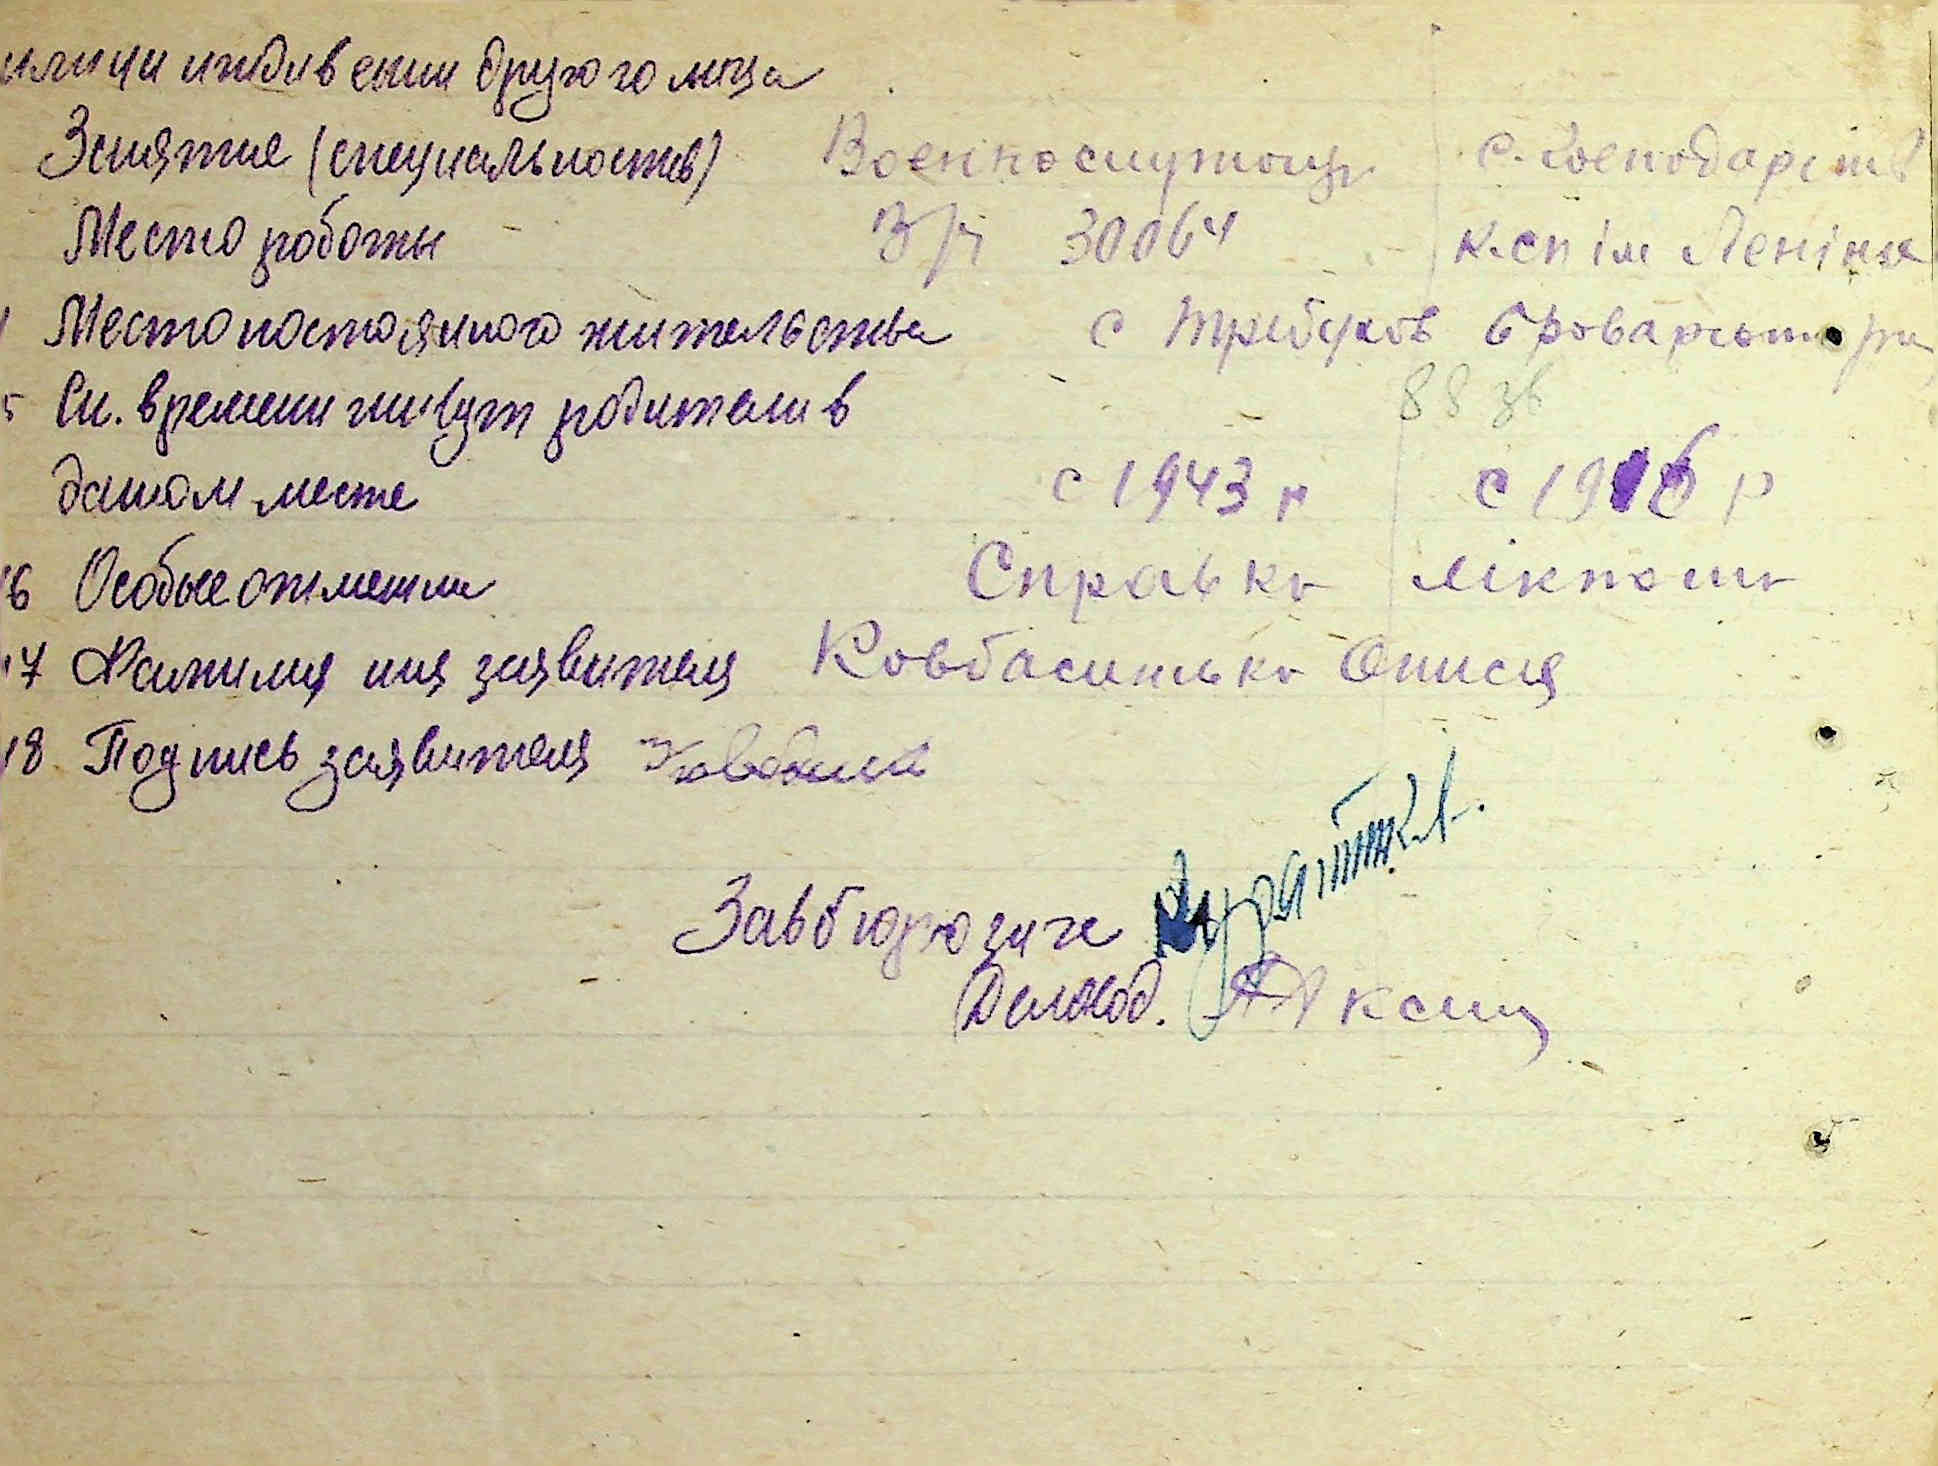 или и иждивении другого лица
Занятие (специальность) Военнослужащ с. господарств
Место работы В/ч 30064 к-сп ім Леніна
Место постоянного жительства с Требухов Броварського рн
5 Ск. времени живут родители в 88 зв
даном месте с 1943 р с 1916 р
16 Особые отметки Справка лікпома
17 Фамилия имя заявителя Ковбасинська Онися
18 Подпись заявителя
Завбюро загс
Делопод.